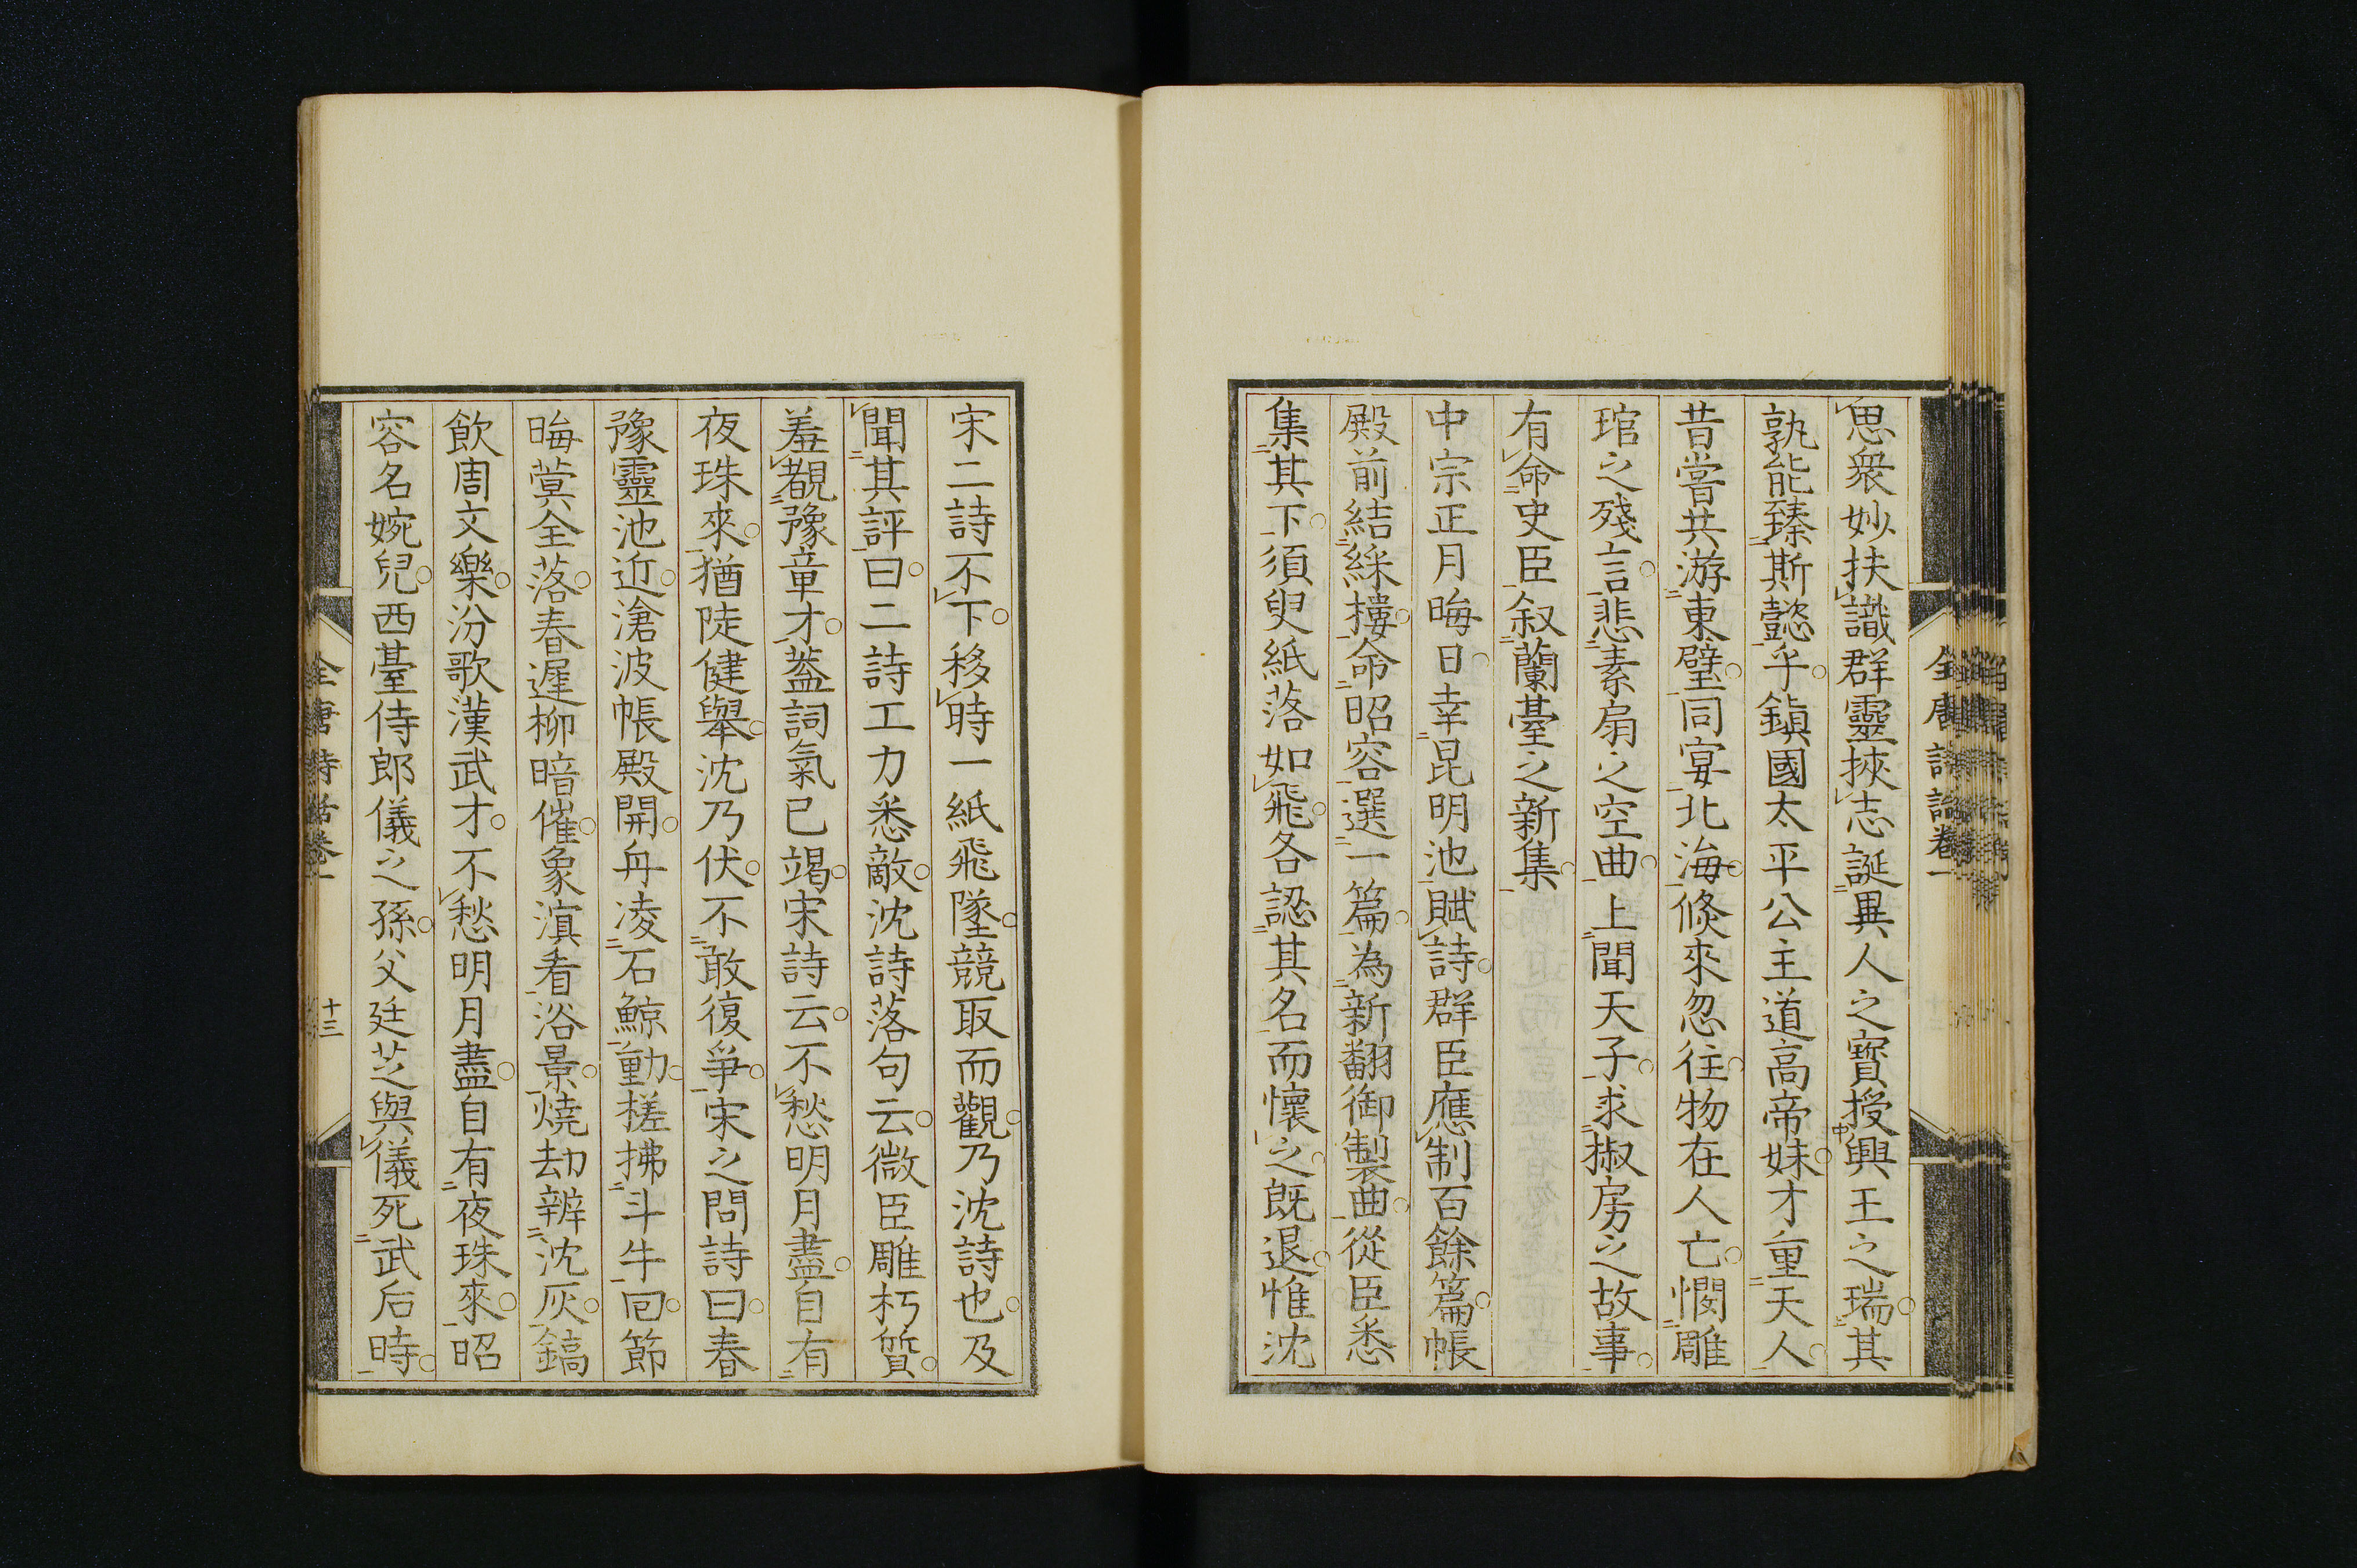 思衆妙扶識群靈挾志誕異人之寶授興王之瑞其
孰能臻斯懿乎鎮國太平公主道高帝妹才重天人
昔嘗共游東壁同宴北海倐來忽往物在人亡憫雕
琯之殘言悲素扇之空曲上聞天子求椒房之故事
有命史臣叙蘭臺之新集
中宗正月晦日幸昆明池賦詩群臣應制百餘篇帳
殿前結綵樓命昭容選一篇為新翻御製曲從臣悉
集其下須臾紙落如飛各認其名而懷之既退惟沈
宋二詩不下移時一紙飛墜競取而觀乃沈詩也及
聞其評曰二詩工力悉敵沈詩落句云微臣雕朽質
羞覩豫章才葢詞氣已竭宋詩云不愁明月盡自有
夜珠來猶陡健舉沈乃伏不敢復爭宋之問詩曰春
豫靈池近滄波帳殿開舟凌石鯨動槎拂斗牛回節
晦蓂全落春遲柳暗催象溟看浴景燒劫辨沈灰鎬
飲周文樂汾歌漢武才不愁明月盡自有夜珠來昭
容名婉兒西臺侍郎儀之孫父廷芝與儀死武后時
全唐詩話卷一
十三